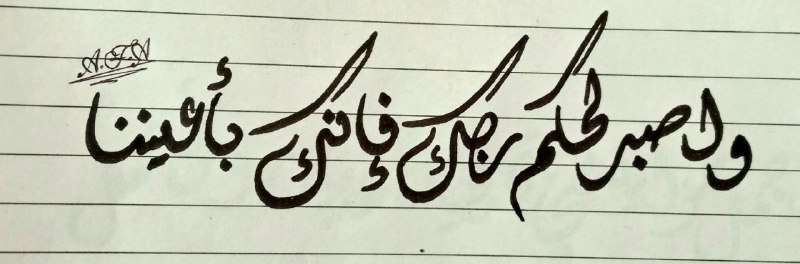 واصبر لحكم ربك فإنك بأعيننا
A.F.A